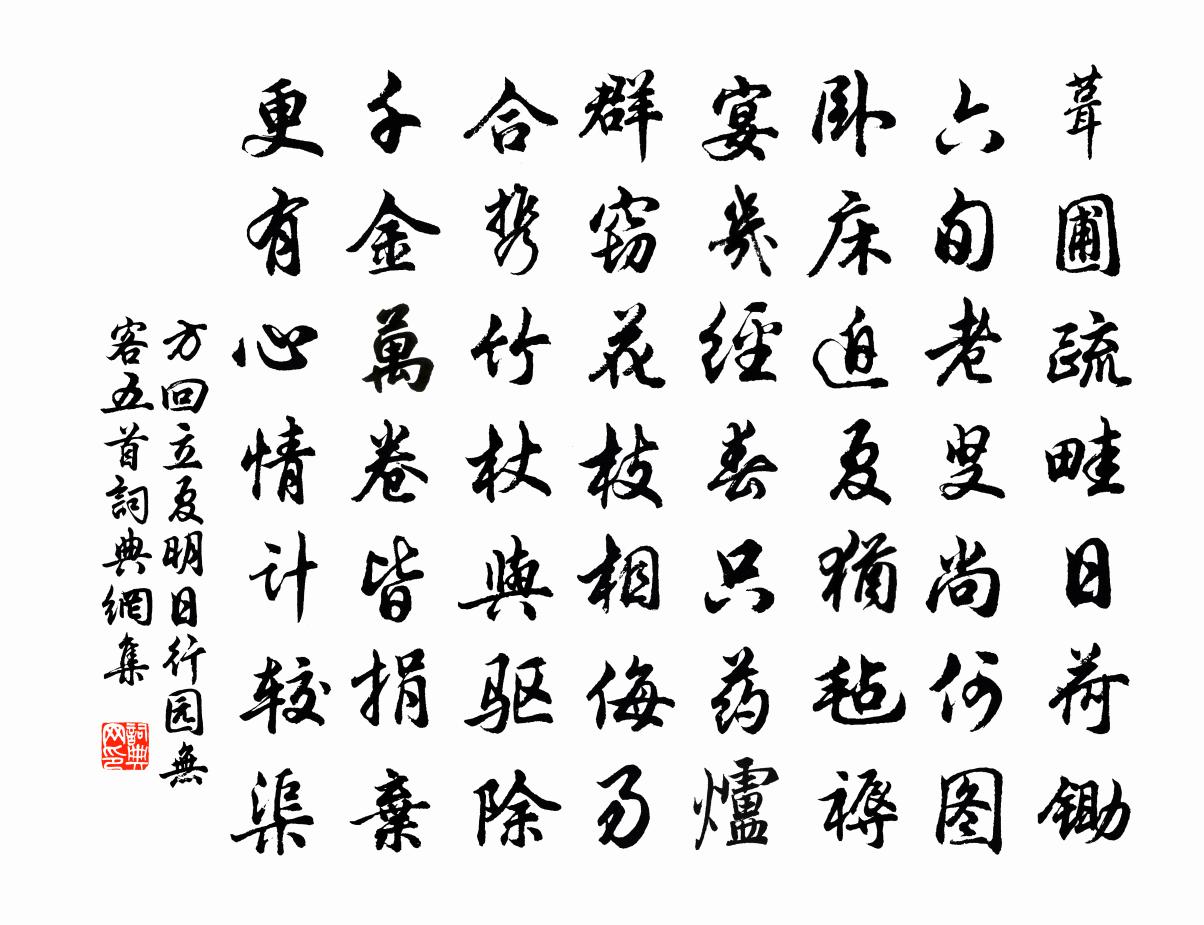 葺圃疏畦日荷鋤
六旬老叟尚何图
卧床迫夏猶毡褥
宴幾經春只药爐
群窃花枝相侮易
合携竹杖與驱除
千金萬卷皆捐棄
更有心情计较渠
方回立夏明日行园無
客五首詞典網集
詞典网印